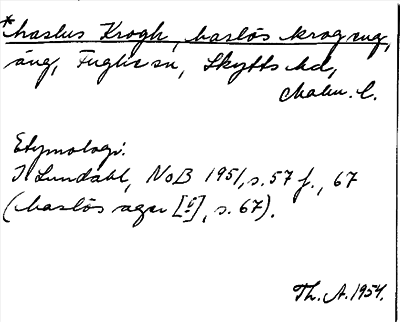 *haslus Krogh, haslös krog ung,
äng, Fuglie sn, Skytts hd,
Malm. l.
Etymologi:
I Lundahl, NoB 1951, s. 57 f., 67
(haslös agre [c], s. 67).
Th. A. 1954.